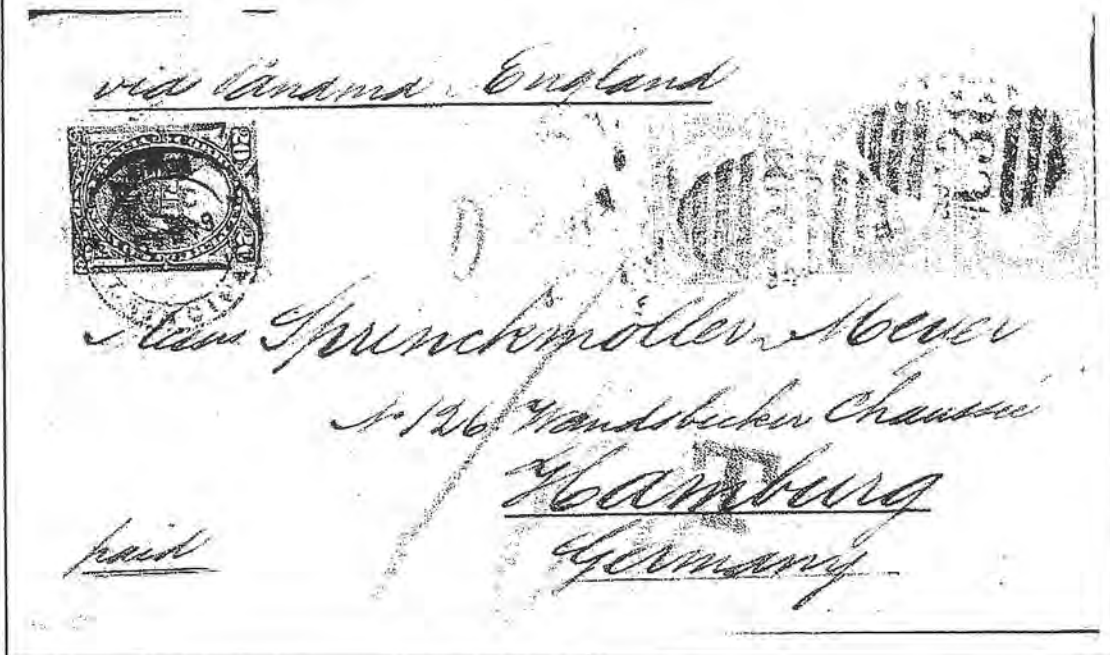 via Panama England
20 20
C38
Sprinckmöller Meyer
No 126 Wandsbecker Chaussée
T
Hamburg
paid
Germany